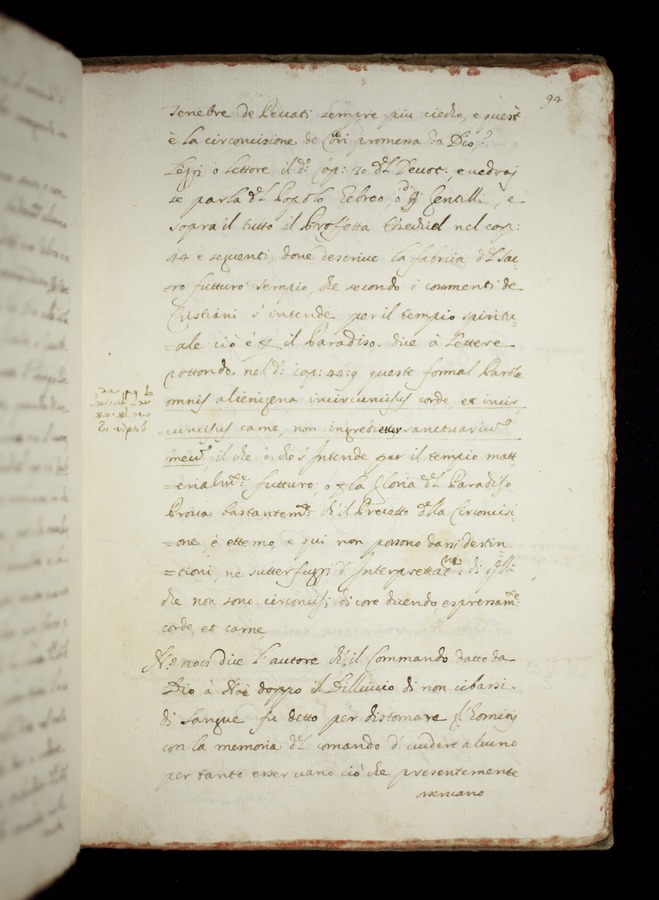 94
Tenebre de Peccati sempre piu ciecho, e quest
è la circoncisione de Cori promessa da Dio
Leggi o lettore il d: Cap: 30 del Deuot: e vedraj
se parla del Popolo Ebreo, o d Gentilli, e
sopra il tutto il Proffetta Ezechiel nel cap:
44 e seguenti, dove descrive la fabrica del sac
ro futturo Tempio, che secondo i commenti de
Cristiani s'intende per il tempio spiritu=
=ale ciò è il Paradiso. dice à Lettere
rottonde nel d: cap: 44:9 queste formal Parole
omnis alienigena incircuncisus corde, et incir=
=cuncisus carne, non ingredietur sanctuariu
meu il che ò che s'Intende per il tempio matt=
=erialm.e futturo, o la Gloria del Paradiso
Prova bastantem.e ch'il Precetto della Circoncisi
=one è etterno, e qui non possono darsi destin
=tioni, ne sutterfuggi d'Interprettat: di q.lli
che non sono circoncisi di core dicendo espressam.e
corde, et carne
N.o dice l'autore ch'il Commando datto da
Dio à Noè doppo il Dilluvio di non cibarsi
di sangue fu detto per distornare gl'Hominj
con la memoria del comando d'uccidere alcuno
per tanto osservano ciò che presentemente
osservano